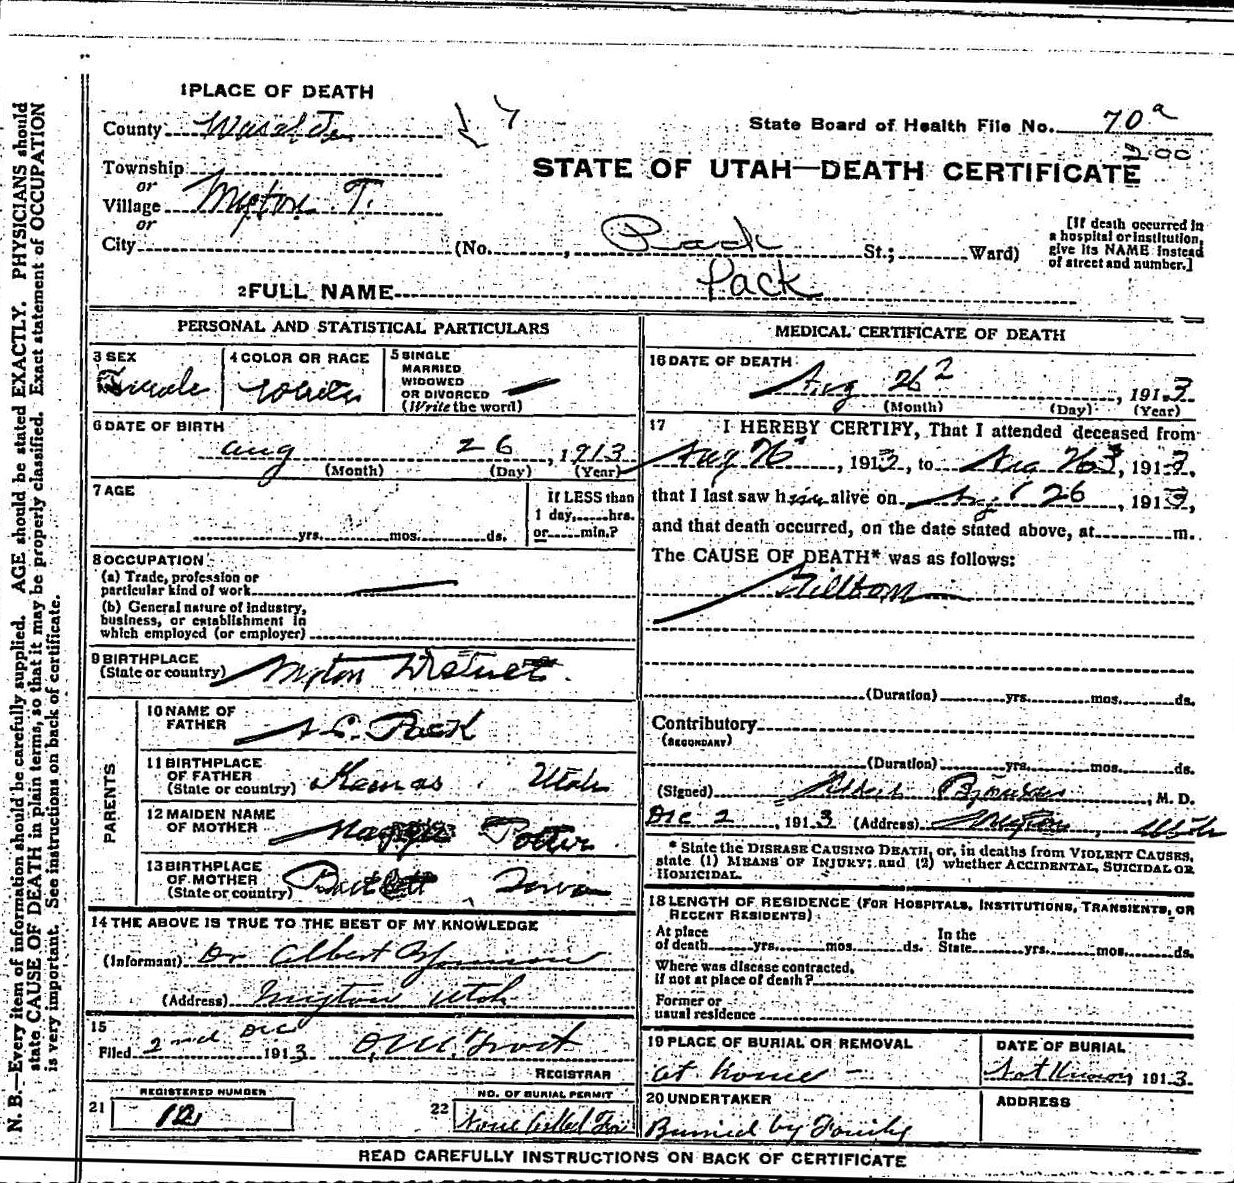 1 PLACE OF DEATH
County Wasatch
State Board of Health File No. 70a
Township
or
Village Myton T.
or
City
STATE OF UTAH—DEATH CERTIFICATE
(No. , Pack St.; Ward)
[If death occurred in a hospital or institution, give its NAME instead of street and number.]
2 FULL NAME Pack
PERSONAL AND STATISTICAL PARTICULARS
3 SEX
Female
4 COLOR OR RACE
White
5 SINGLE
MARRIED
WIDOWED
OR DIVORCED
(Write the word)
6 DATE OF BIRTH
Aug 26, 1913
(Month) (Day) (Year)
7 AGE
yrs. mos. ds.
If LESS than
1 day, hrs.
or min.?
8 OCCUPATION
(a) Trade, profession or
particular kind of work
(b) General nature of industry,
business, or establishment in
which employed (or employer)
9 BIRTHPLACE
(State or country) Myton District.
PARENTS
10 NAME OF
FATHER Pack
11 BIRTHPLACE
OF FATHER
(State or country) Kamas, Utah
12 MAIDEN NAME
OF MOTHER Potter
13 BIRTHPLACE
OF MOTHER
(State or country) Iowa
14 THE ABOVE IS TRUE TO THE BEST OF MY KNOWLEDGE
(Informant) Dr Albert
(Address) Myton Utah
15
Filed 2nd Dec 1913
REGISTRAR
REGISTERED NUMBER
21
22 NO. OF BURIAL PERMIT
None Called For
MEDICAL CERTIFICATE OF DEATH
16 DATE OF DEATH
Aug 26, 1913
(Month) (Day) (Year)
17 I HEREBY CERTIFY, That I attended deceased from
Aug 26, 1913, to Aug 26, 1913,
that I last saw him alive on Aug 26, 1913,
and that death occurred, on the date stated above, at m.
The CAUSE OF DEATH* was as follows:
Stillborn
(Duration) yrs. mos. ds.
Contributory
(SECONDARY)
(Duration) yrs. mos. ds.
(Signed) Albert , M. D.
Dec 2, 1913 (Address) Myton, Utah
* State the DISEASE CAUSING DEATH, or, in deaths from VIOLENT CAUSES,
state (1) MEANS OF INJURY; and (2) whether ACCIDENTAL, SUICIDAL OR
HOMICIDAL.
18 LENGTH OF RESIDENCE (FOR HOSPITALS, INSTITUTIONS, TRANSIENTS, OR
RECENT RESIDENTS)
At place
of death yrs. mos. ds.
In the
State yrs. mos. ds.
Where was disease contracted,
if not at place of death?
Former or
usual residence
19 PLACE OF BURIAL OR REMOVAL
at home
DATE OF BURIAL
Not Known 1913
20 UNDERTAKER
Burried by Family
ADDRESS
READ CAREFULLY INSTRUCTIONS ON BACK OF CERTIFICATE
N. B.—Every item of information should be carefully supplied. AGE should be stated EXACTLY. PHYSICIANS should
state CAUSE OF DEATH in plain terms, so that it may be properly classified. Exact statement of OCCUPATION
is very important. See instructions on back of certificate.